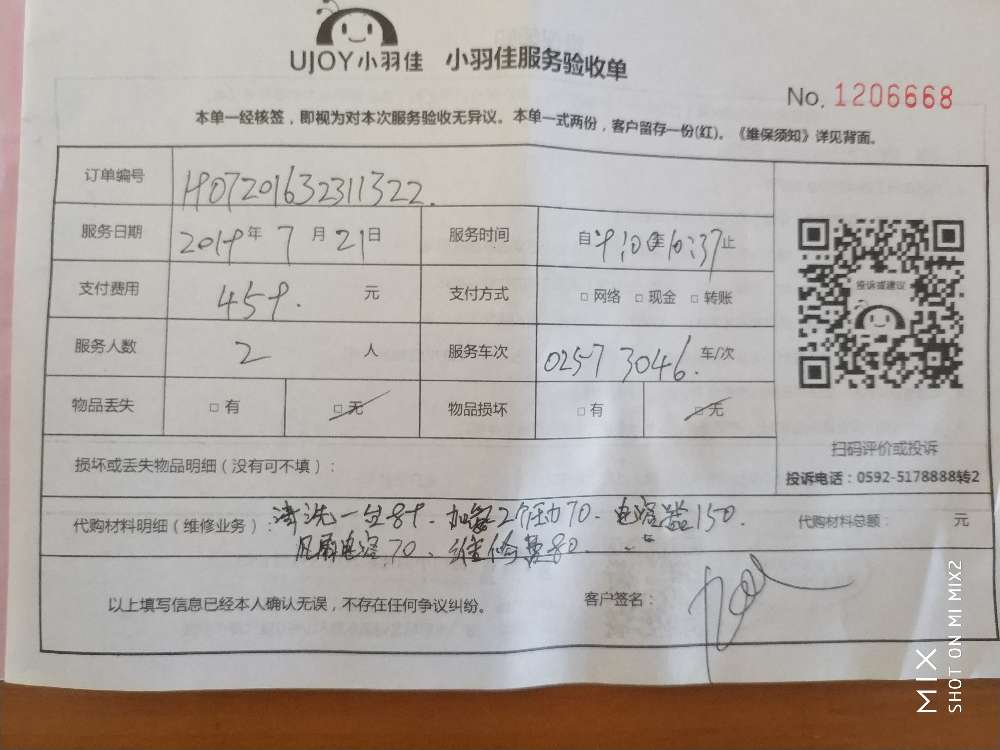 UJOY小羽佳 小羽佳服务验收单
No. 1206668
本单一经核签，即视为对本次服务验收无异议。本单一式两份，客户留存一份(红)。《维保须知》详见背面。
订单编号 H07201632311322.
服务日期 2019年 7月21日 服务时间 自9:00至10:37止
支付费用 459. 元 支付方式 □网络 □现金 □转账
服务人数 2 人 服务车次 0257 3046. 车/次
物品丢失 □有 □无 物品损坏 □有 □无
投诉或建议
扫码评价或投诉
投诉电话：0592-5178888转2
损坏或丢失物品明细（没有可不填）：
代购材料明细（维修业务）：清洗一生89. 加氟2个压力70. 电容器150. 代购材料总额： 元
风扇电容70、维修费80.
以上填写信息已经本人确认无误，不存在任何争议纠纷。 客户签名：
MIX
SHOT ON MI MIX2